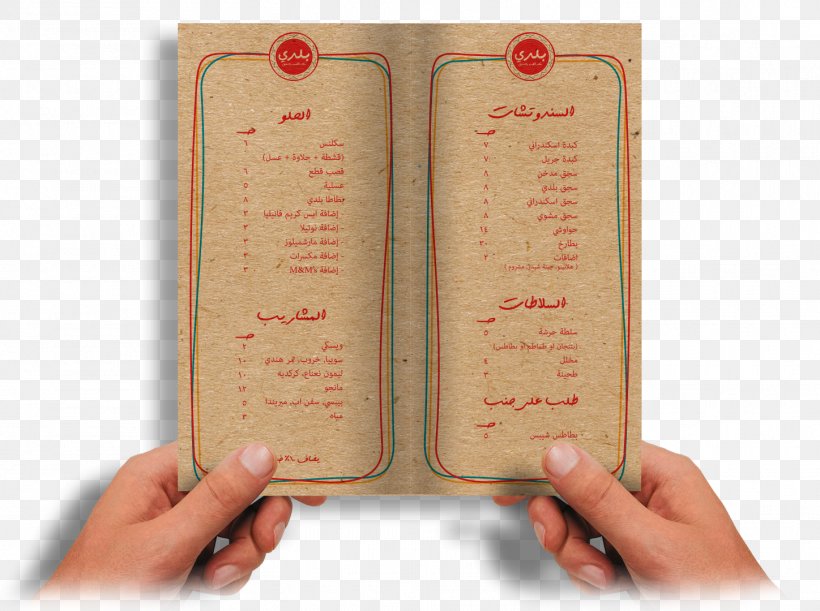 بلدي
السندوتشات
ج
كبدة اسكندراني ٧
كبدة جريل ٧
سجق مدخن ٨
سجق بلدي ٨
سجق اسكندراني ٨
سجق مشوي ٨
حواوشي ١٤
بطارخ ٣٠
اضافات ٢
( هلابينو، جبنة شيدر، مشروم )
السلاطات
ج
سلطة حرشة ٥
(بتنجان او طماطم او بطاطس)
مخلل ٤
طحينة ٣
طلب على جنب
ج
بطاطس شيبس ٥
بلدي
الحلو
ج
سكلنس ٦
(قشطة + حلاوة + عسل)
قصب قطع ٦
عسلية ٥
بطاطا بلدي ٨
- إضافة ايس كريم فانيليا ٣
- إضافة نوتيلا ٢
- إضافة مارشميلوز ٣
- إضافة مكسرات ٣
- إضافة M&M's ٣
المشاريب
ج
ويسكي ٢
سوبيا، خروب، تمر هندي ١٠
ليمون نعناع، كركديه ١٠
مانجو ١٢
بيبسي، سفن اب، ميريندا ٥
مياه ٣
يضاف ١٠٪